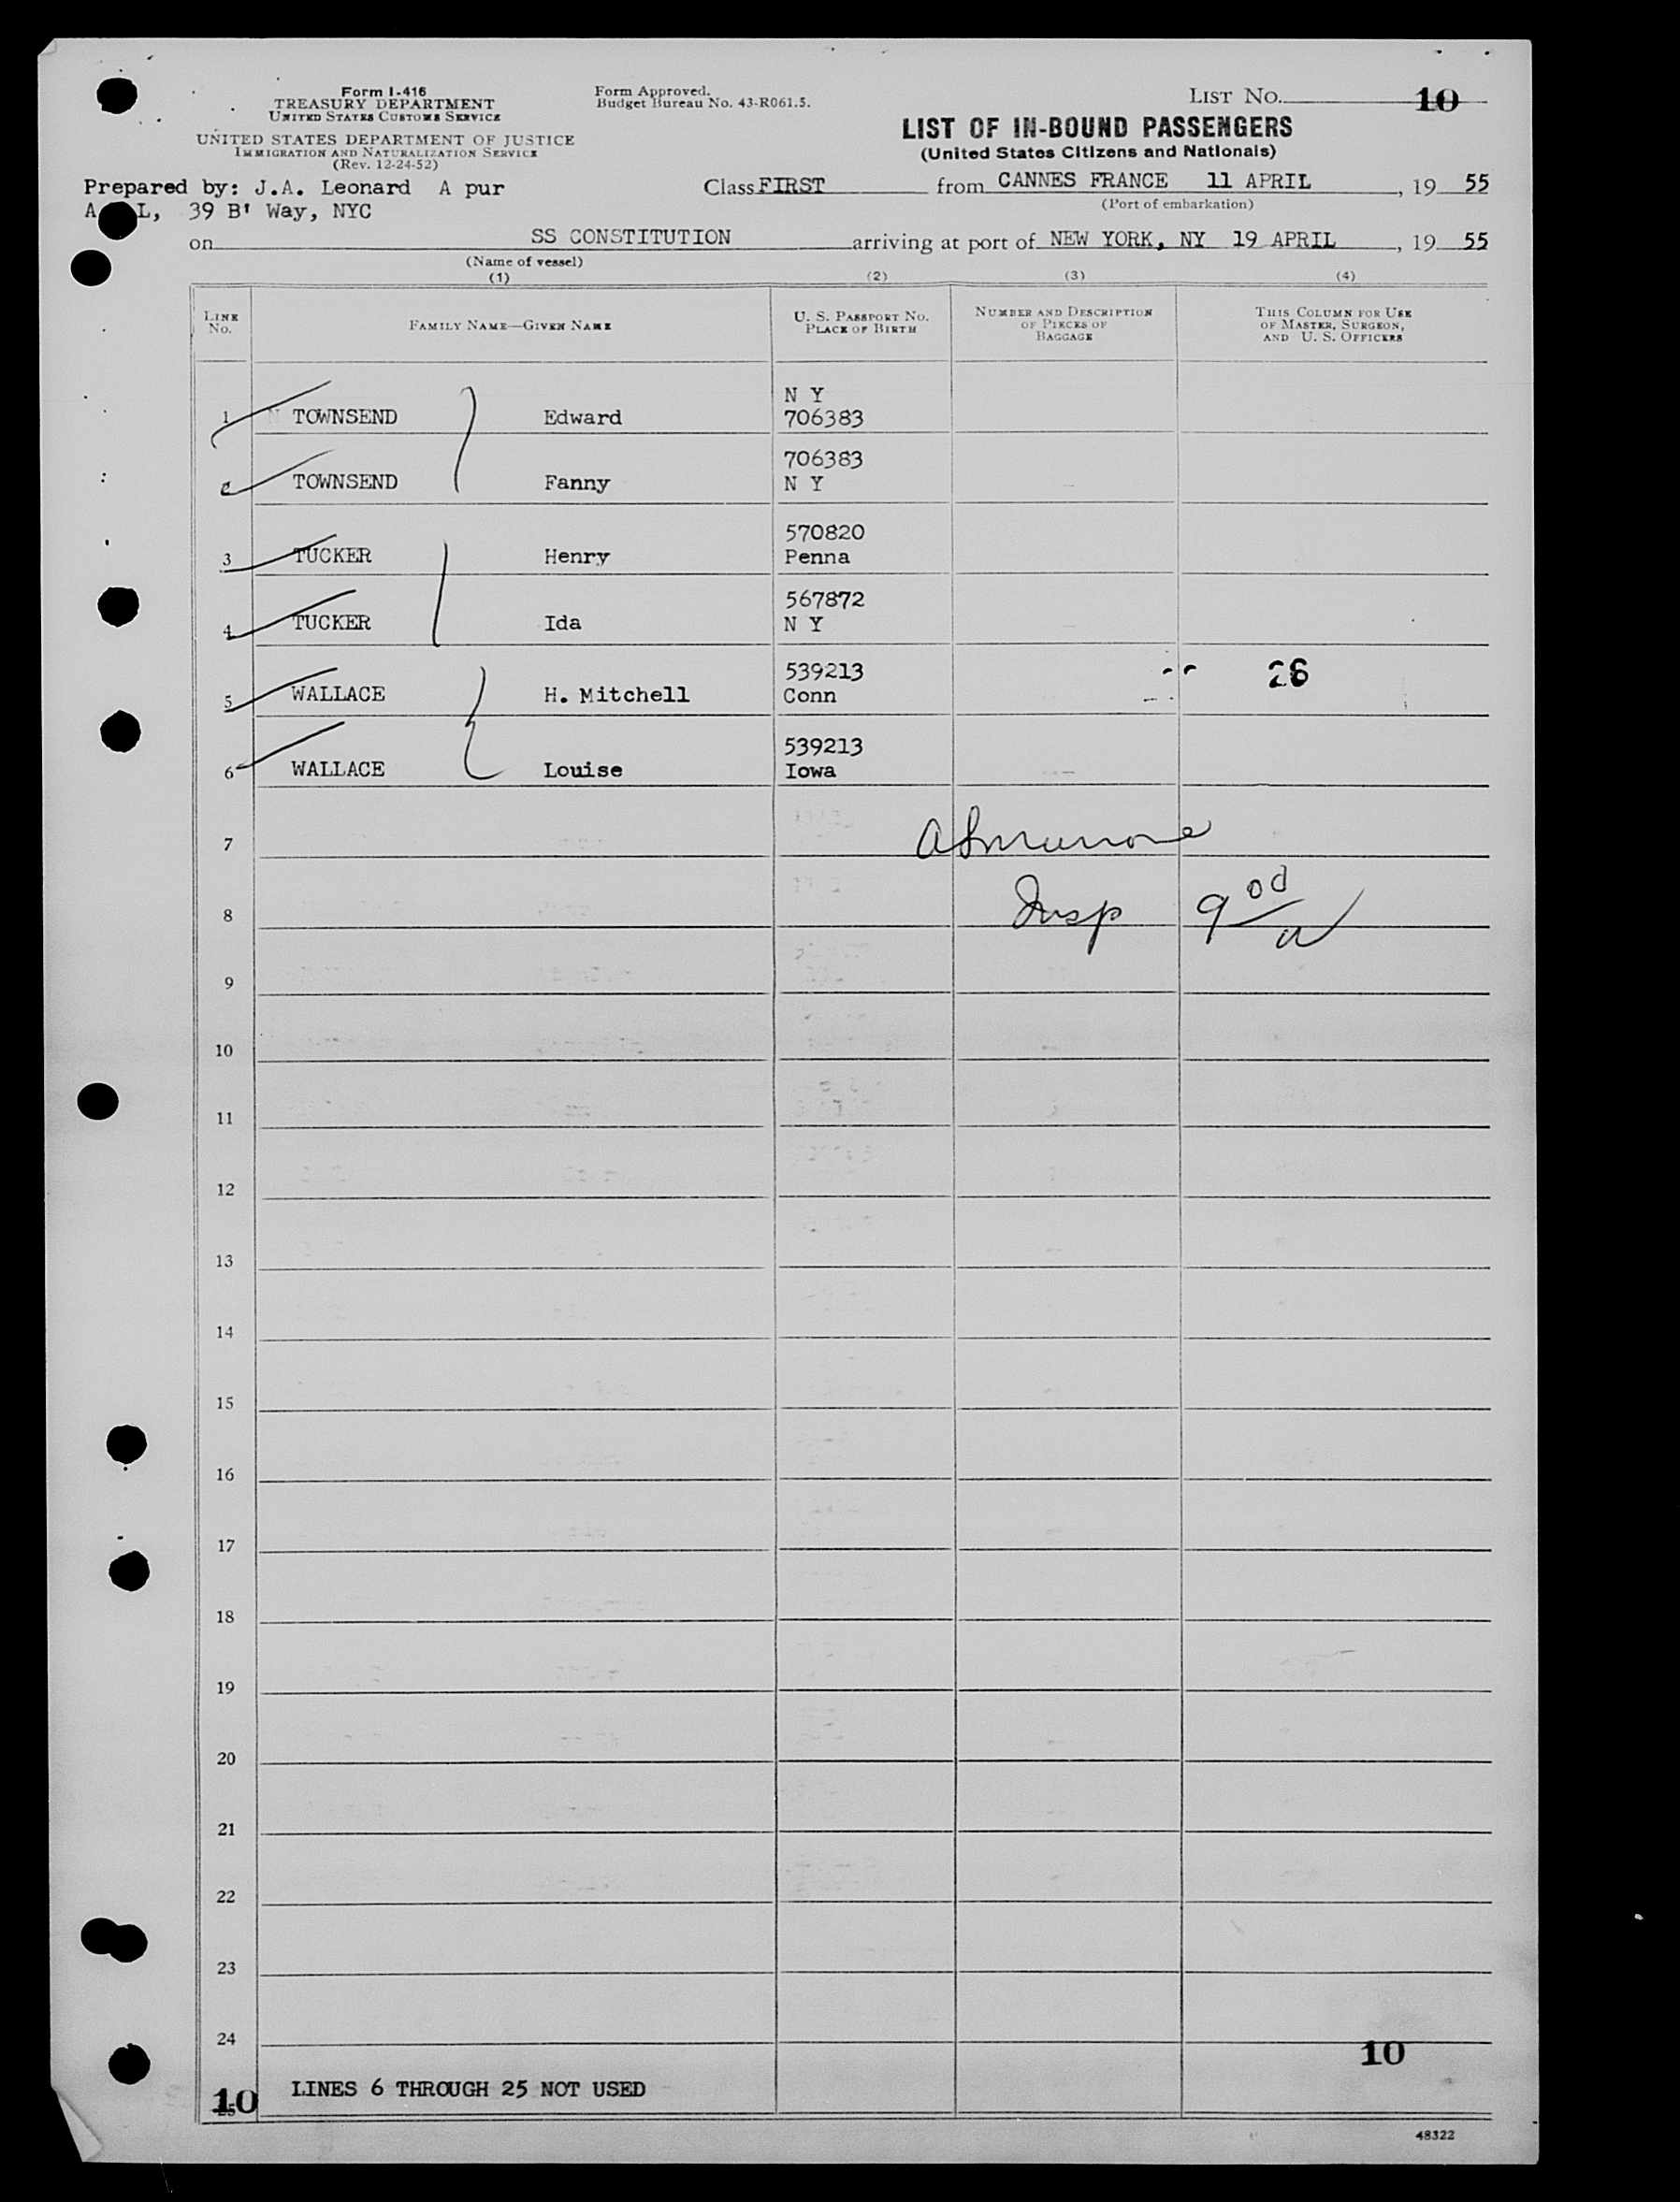 Form I-416
TREASURY DEPARTMENT
UNITED STATES CUSTOMS SERVICE
UNITED STATES DEPARTMENT OF JUSTICE
IMMIGRATION AND NATURALIZATION SERVICE
(Rev. 12-24-52)
Form Approved.
Budget Bureau No. 43-R061.5.
LIST NO. 10
LIST OF IN-BOUND PASSENGERS
(United States Citizens and Nationals)
Prepared by: J.A. Leonard A pur
A L, 39 B' Way, NYC
Class FIRST from CANNES FRANCE 11 APRIL, 19 55
(Port of embarkation)
on SS CONSTITUTION arriving at port of NEW YORK, NY 19 APRIL, 19 55
(Name of vessel)
(1) (2) (3) (4)
LINE No.
FAMILY NAME—GIVEN NAME
U. S. PASSPORT NO.
PLACE OF BIRTH
NUMBER AND DESCRIPTION
OF PIECES OF
BAGGAGE
THIS COLUMN FOR USE
OF MASTER, SURGEON,
AND U. S. OFFICERS
N Y
1 TOWNSEND Edward 706383
706383
2 TOWNSEND Fanny N Y
570820
3 TUCKER Henry Penna
567872
4 TUCKER Ida N Y
539213 26
5 WALLACE H. Mitchell Conn
539213
6 WALLACE Louise Iowa
7
8 Insp
9
10
11
12
13
14
15
16
17
18
19
20
21
22
23
24
10
LINES 6 THROUGH 25 NOT USED
10
25
48322